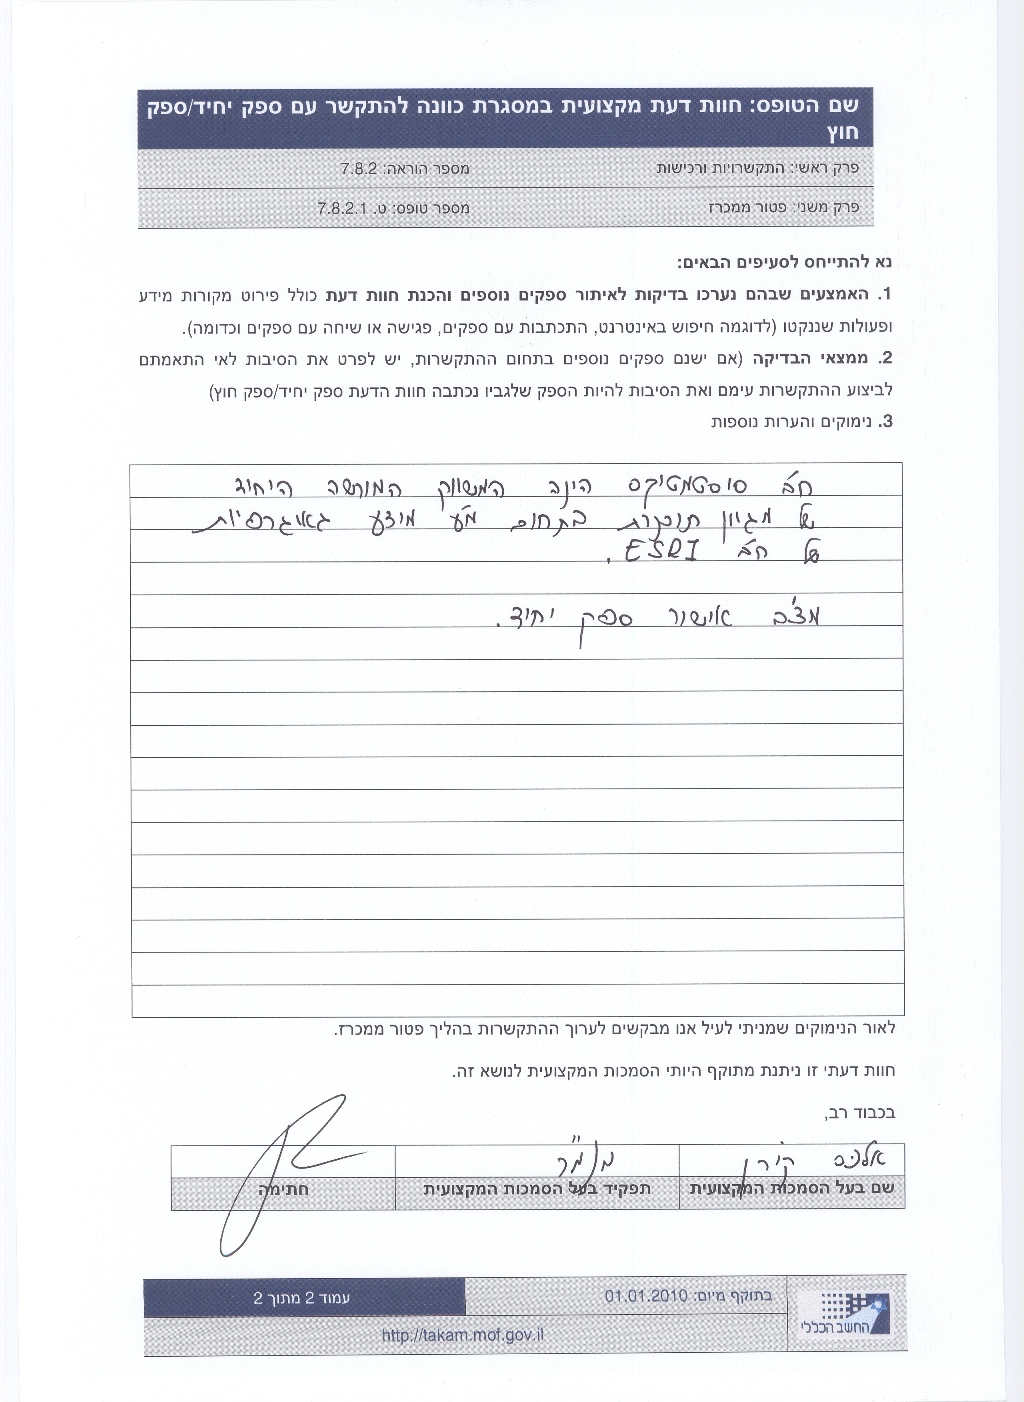 שם הטופס: חוות דעת מקצועית במסגרת כוונה להתקשר עם ספק יחיד/ספק
חוץ
פרק ראשי: התקשרויות ורכישות מספר הוראה: 7.8.2
פרק משני: פטור ממכרז מספר טופס: ט. 7.8.2.1
נא להתייחס לסעיפים הבאים:
1. האמצעים שבהם נערכו בדיקות לאיתור ספקים נוספים והכנת חוות דעת כולל פירוט מקורות מידע
ופעולות שננקטו (לדוגמה חיפוש באינטרנט, התכתבות עם ספקים, פגישה או שיחה עם ספקים וכדומה).
2. ממצאי הבדיקה (אם ישנם ספקים נוספים בתחום ההתקשרות, יש לפרט את הסיבות לאי התאמתם
לביצוע ההתקשרות עימם ואת הסיבות להיות הספק שלגביו נכתבה חוות הדעת ספק יחיד/ספק חוץ)
3. נימוקים והערות נוספות
חב' סיסטמטיקס הינה המשווק המורשה היחיד
של מגוון תוכנות בתחום מע' מידע גאוגרפיות
של חב' ESRI.
מצ"ב אישור ספק יחיד.
לאור הנימוקים שמניתי לעיל אנו מבקשים לערוך ההתקשרות בהליך פטור ממכרז.
חוות דעתי זו ניתנת מתוקף היותי הסמכות המקצועית לנושא זה.
בכבוד רב,
אלכס
שם בעל הסמכות המקצועית תפקיד בעל הסמכות המקצועית חתימה
בתוקף מיום: 01.01.2010 עמוד 2 מתוך 2
http://takam.mof.gov.il
החשב הכללי